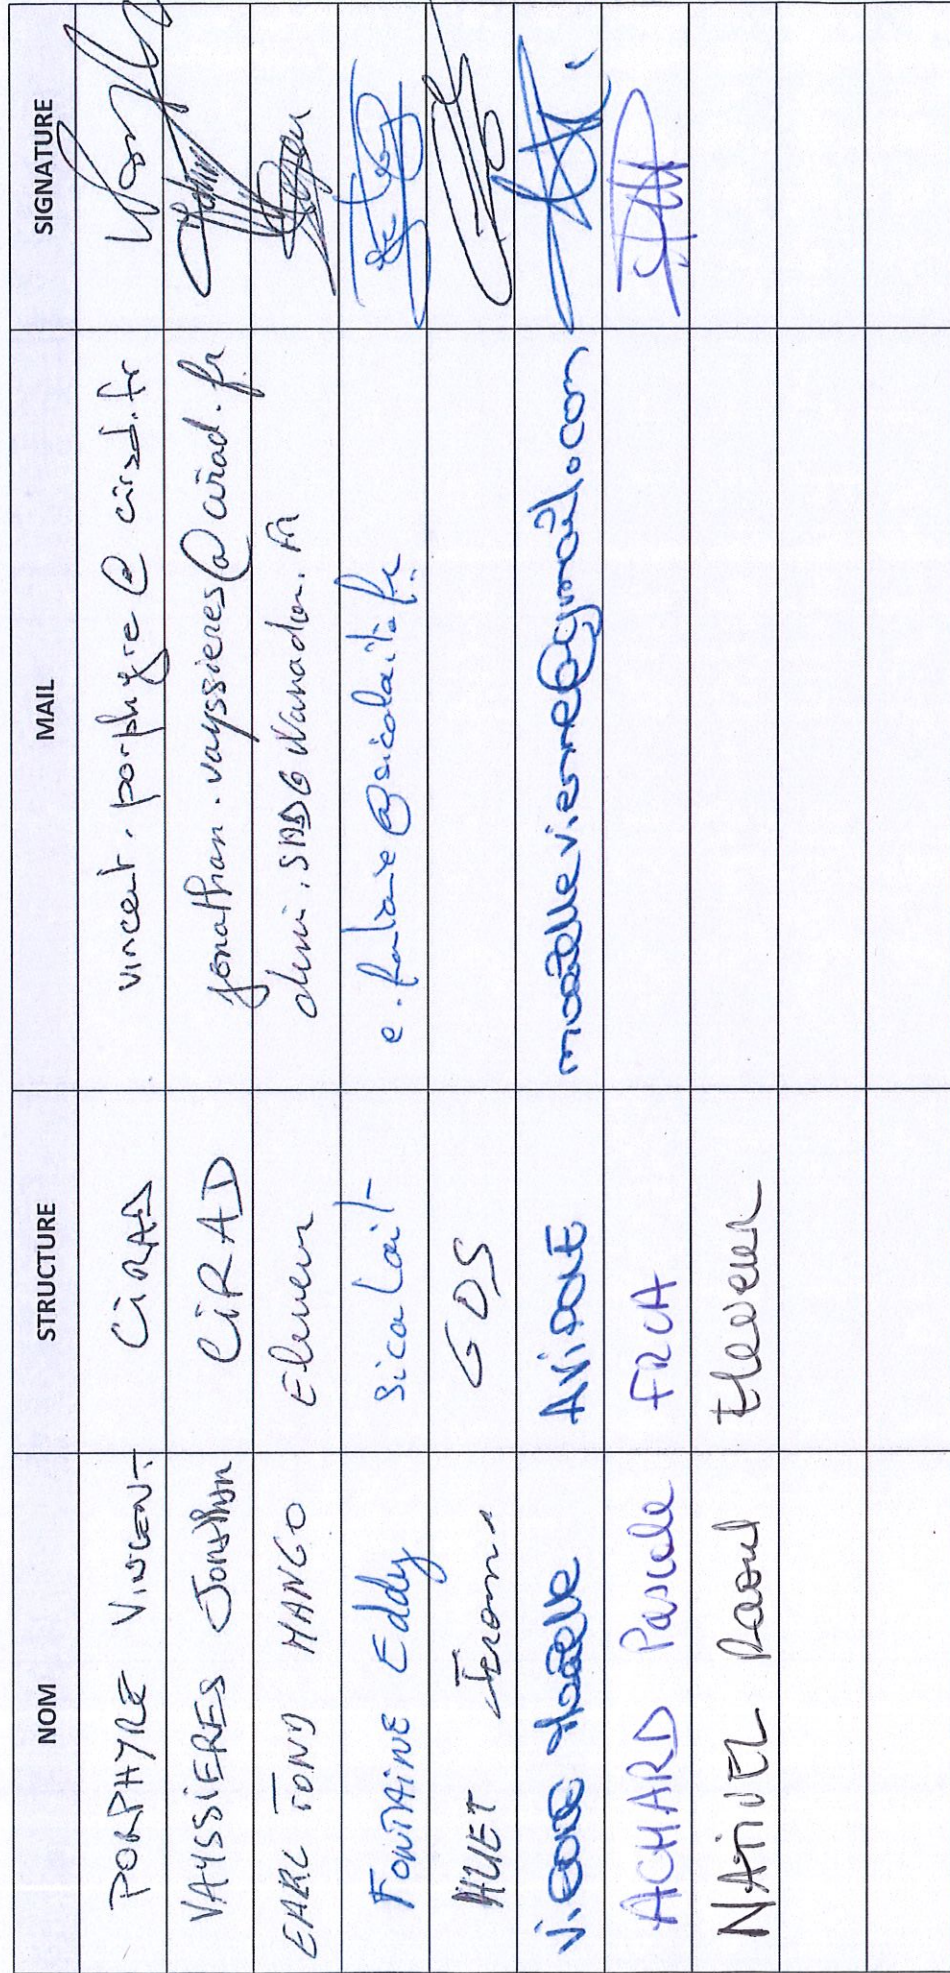 NOM STRUCTURE MAIL SIGNATURE
PORPHYRE VINCENT CiRAD vincent.porphyre@cirad.fr
VAYSSIERES Jonathan CiRAD jonathan.vayssieres@cirad.fr
EARL TONY MANGO Eleveur
FONTAINE Eddy Sicalait e.fontaine@sicalait.fr
HUET Jerome GDS
Vienne Maëlle AVIPOLE maellevienne@gmail.com
ACHARD Pascale FRCA
NATIVEL Raoul Eleveur